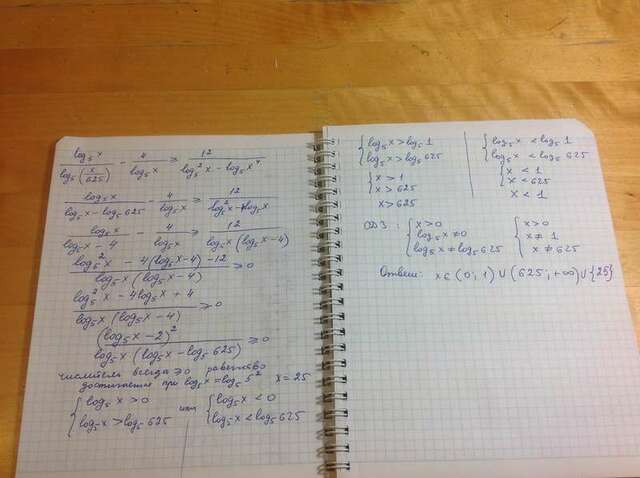 log₅x / log₅(x/625) − 4 / log₅x ≥ 12 / (log₅²x − log₅x⁴)
log₅x / (log₅x − log₅625) − 4 / log₅x ≥ 12 / (log₅²x − 4log₅x)
log₅x / (log₅x − 4) − 4 / log₅x ≥ 12 / (log₅x (log₅x − 4))
(log₅²x − 4(log₅x − 4) − 12) / (log₅x (log₅x − 4)) ≥ 0
(log₅²x − 4log₅x + 4) / (log₅x (log₅x − 4)) ≥ 0
(log₅x − 2)² / (log₅x (log₅x − log₅625)) ≥ 0
числитель всегда ≥0 равенство
достигается при log₅x = log₅5² x = 25
{ log₅x > 0 или { log₅x < 0
log₅x > log₅625 log₅x < log₅625
{ log₅x > log₅1 { log₅x < log₅1
log₅x > log₅625 log₅x < log₅625
{ x > 1 { x < 1
x > 625 x < 625
x > 625 x < 1
ОДЗ: { x > 0 { x > 0
log₅x ≠ 0 x ≠ 1
log₅x ≠ log₅625 x ≠ 625
Ответ: x ∈ (0; 1) ∪ (625; +∞) ∪ {25}